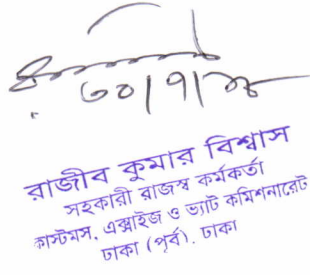 ৩০|৭|
রাজীব কুমার বিশ্বাস
সহকারী রাজস্ব কর্মকর্তা
কাস্টমস, এক্সাইজ ও ভ্যাট কমিশনারেট
ঢাকা (পূর্ব), ঢাকা